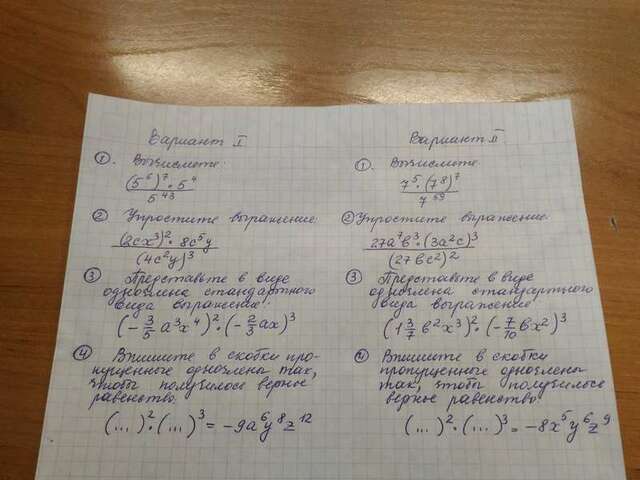 Вариант I
① Вычислите:
(5⁶)⁷ · 5⁴
5⁴³
② Упростите выражение:
(2cx³)² · 8c⁵y
(4c²y)³
③ Представьте в виде
одночлена стандартного
вида выражение:
(-3/5 a³x⁴)² · (-2/3 ax)³
④ Впишите в скобки про-
пущенные одночлены так,
чтобы получилось верное
равенство.
(...)² · (...)³ = -9a⁶y⁸z¹²
Вариант II
① Вычислите
7⁵ · (7⁸)⁷
7⁵⁹
② Упростите выражение.
27a⁷b³ · (3a²c)³
(27bc²)²
③ Представьте в виде
одночлена стандартного
вида выражение
(1 3/7 b²x³)² · (-7/10 bx²)³
④ Впишите в скобки
пропущенные одночлены
так, чтобы получилось
верное равенство.
(...)² · (...)³ = -8x⁵y⁶z⁹